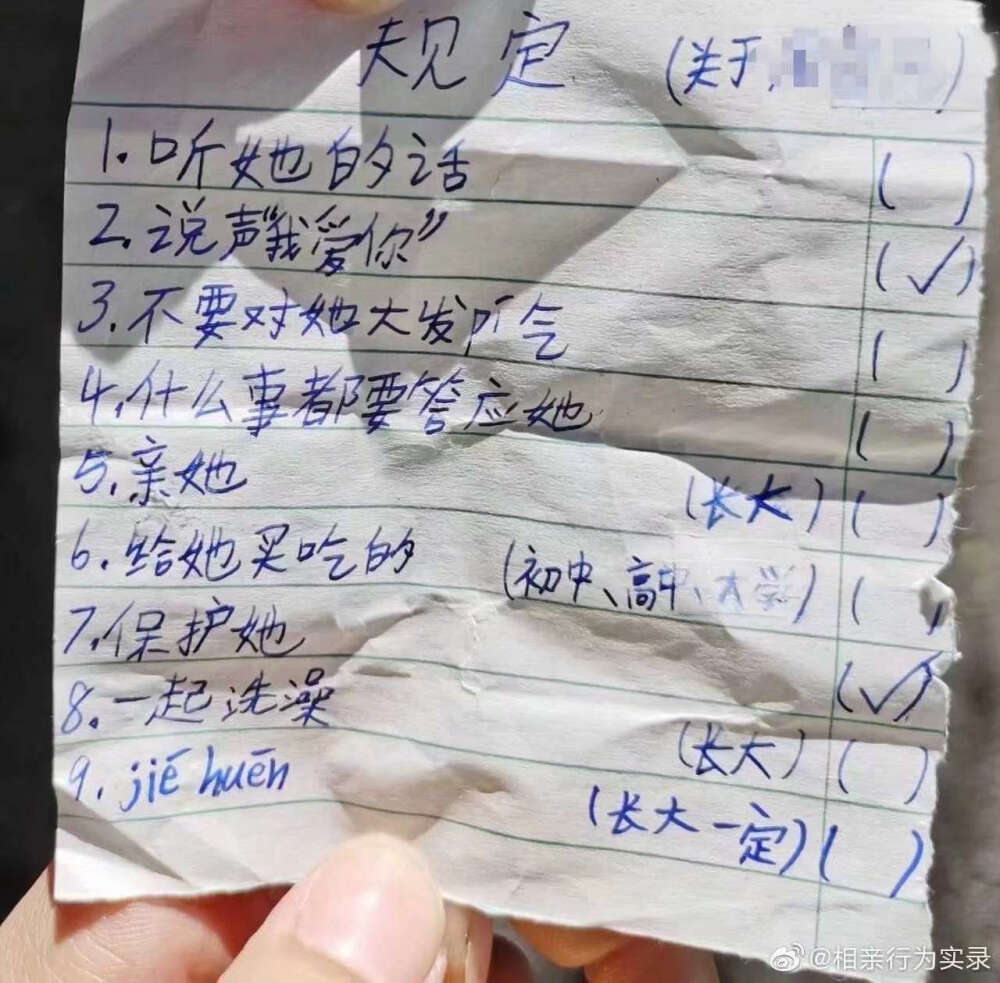 规定 (关于, )
1. 听她的话 ( )
2. 说声“我爱你” (✓)
3. 不要对她大发听气 ( )
4. 什么事都要答应她 ( )
5. 亲她 (长大) ( )
6. 给她买吃的 (初中、高中、大学) ( )
7. 保护她 (✓)
8. 一起洗澡 (长大) ( )
9. jié huēn (长大一定) ( )
@相亲行为实录